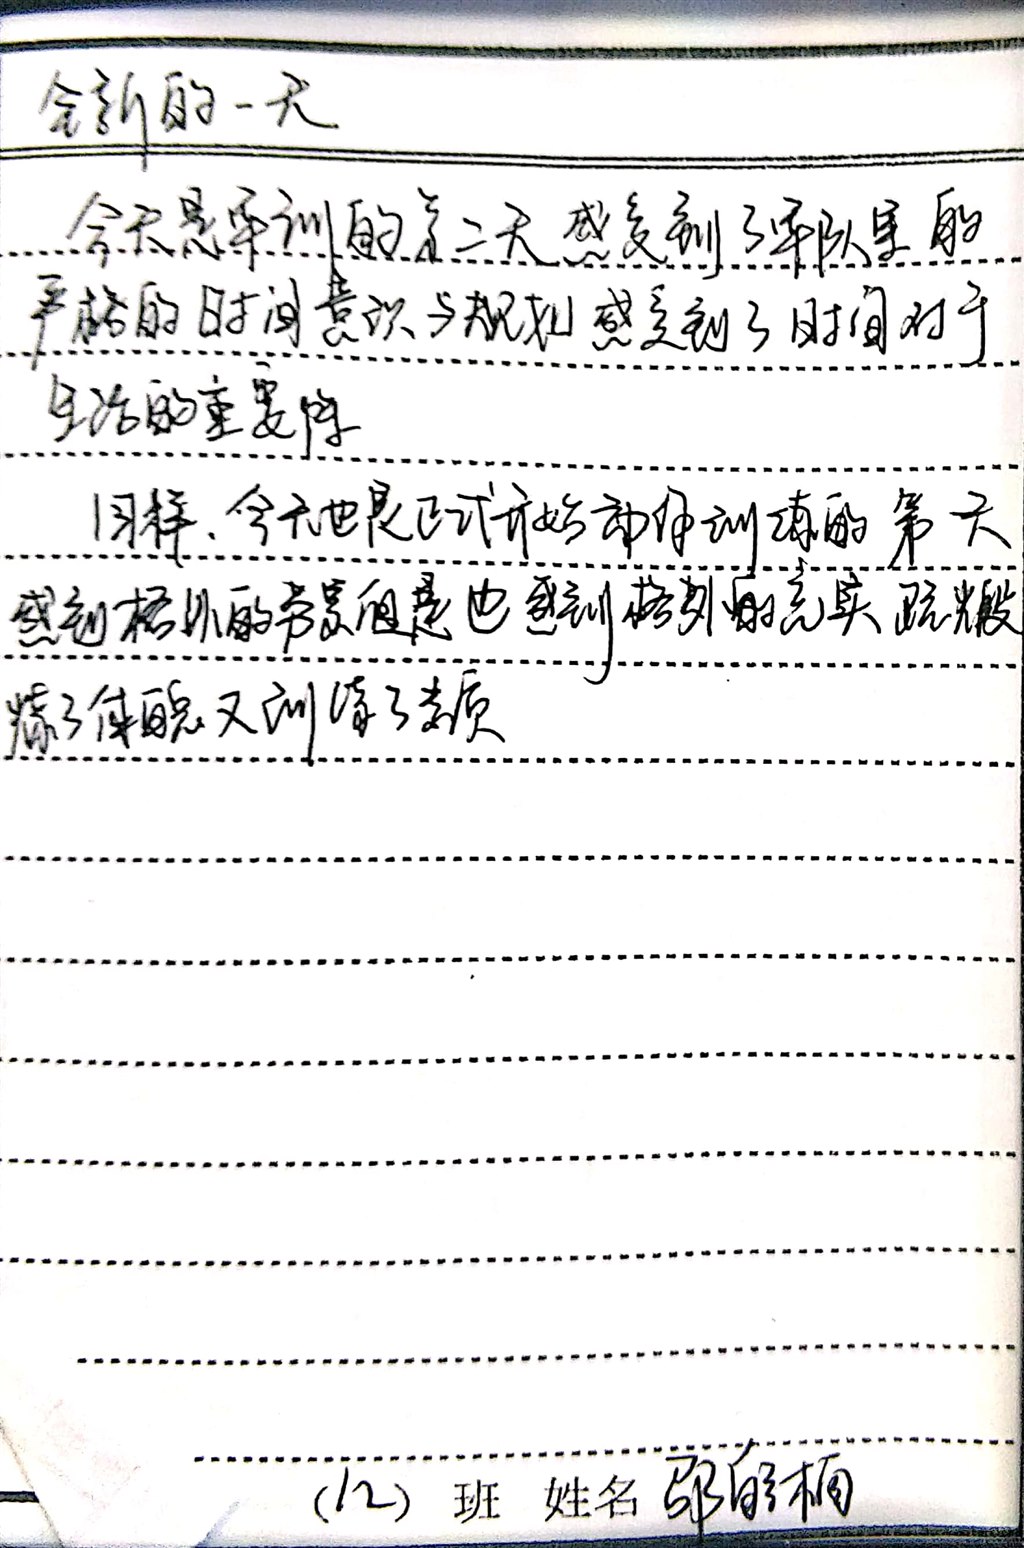 全新的一天
今天是军训的第二天 感受到了军队里的
严格的时间意识与规划 感受到了时间对于
生活的重要性
同样、今天也是正式开始训练的第 天
感到格外的劳累但是也感到格外的充实 既
炼了体魄又训练了素质
(12) 班 姓名